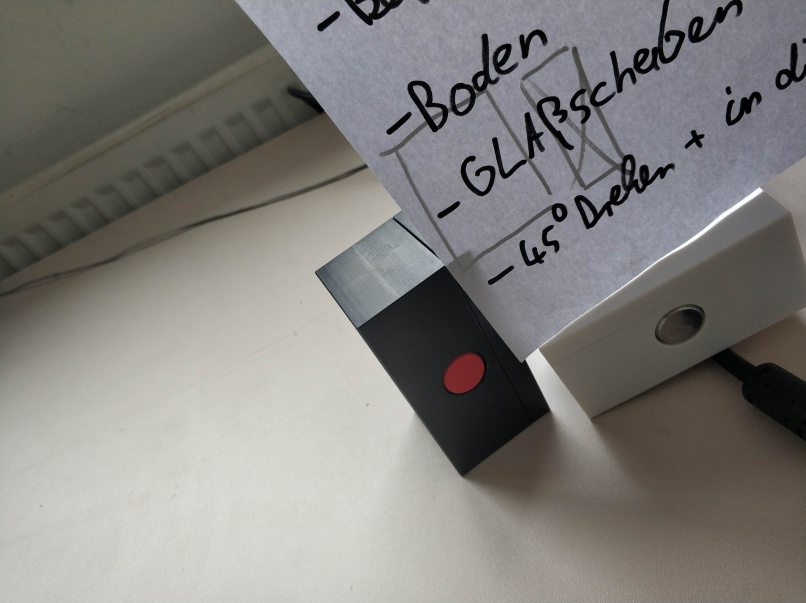 - Boden
- GLAßscheiben
- 45° Drehen + in di